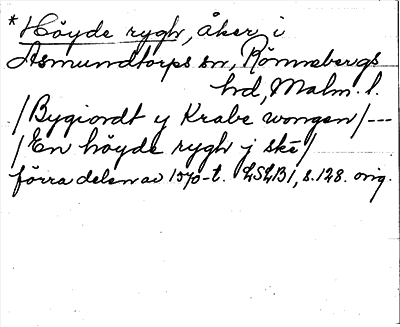 *Höyde rygh, åker i
Asmundtorps sn, Rönnebergs
hd, Malm. l.
/Bygiordt y Krabe wongen/---
/En höyde rygh j skē/
förra delen av 1570-t. LSLB1, s. 128. orig.